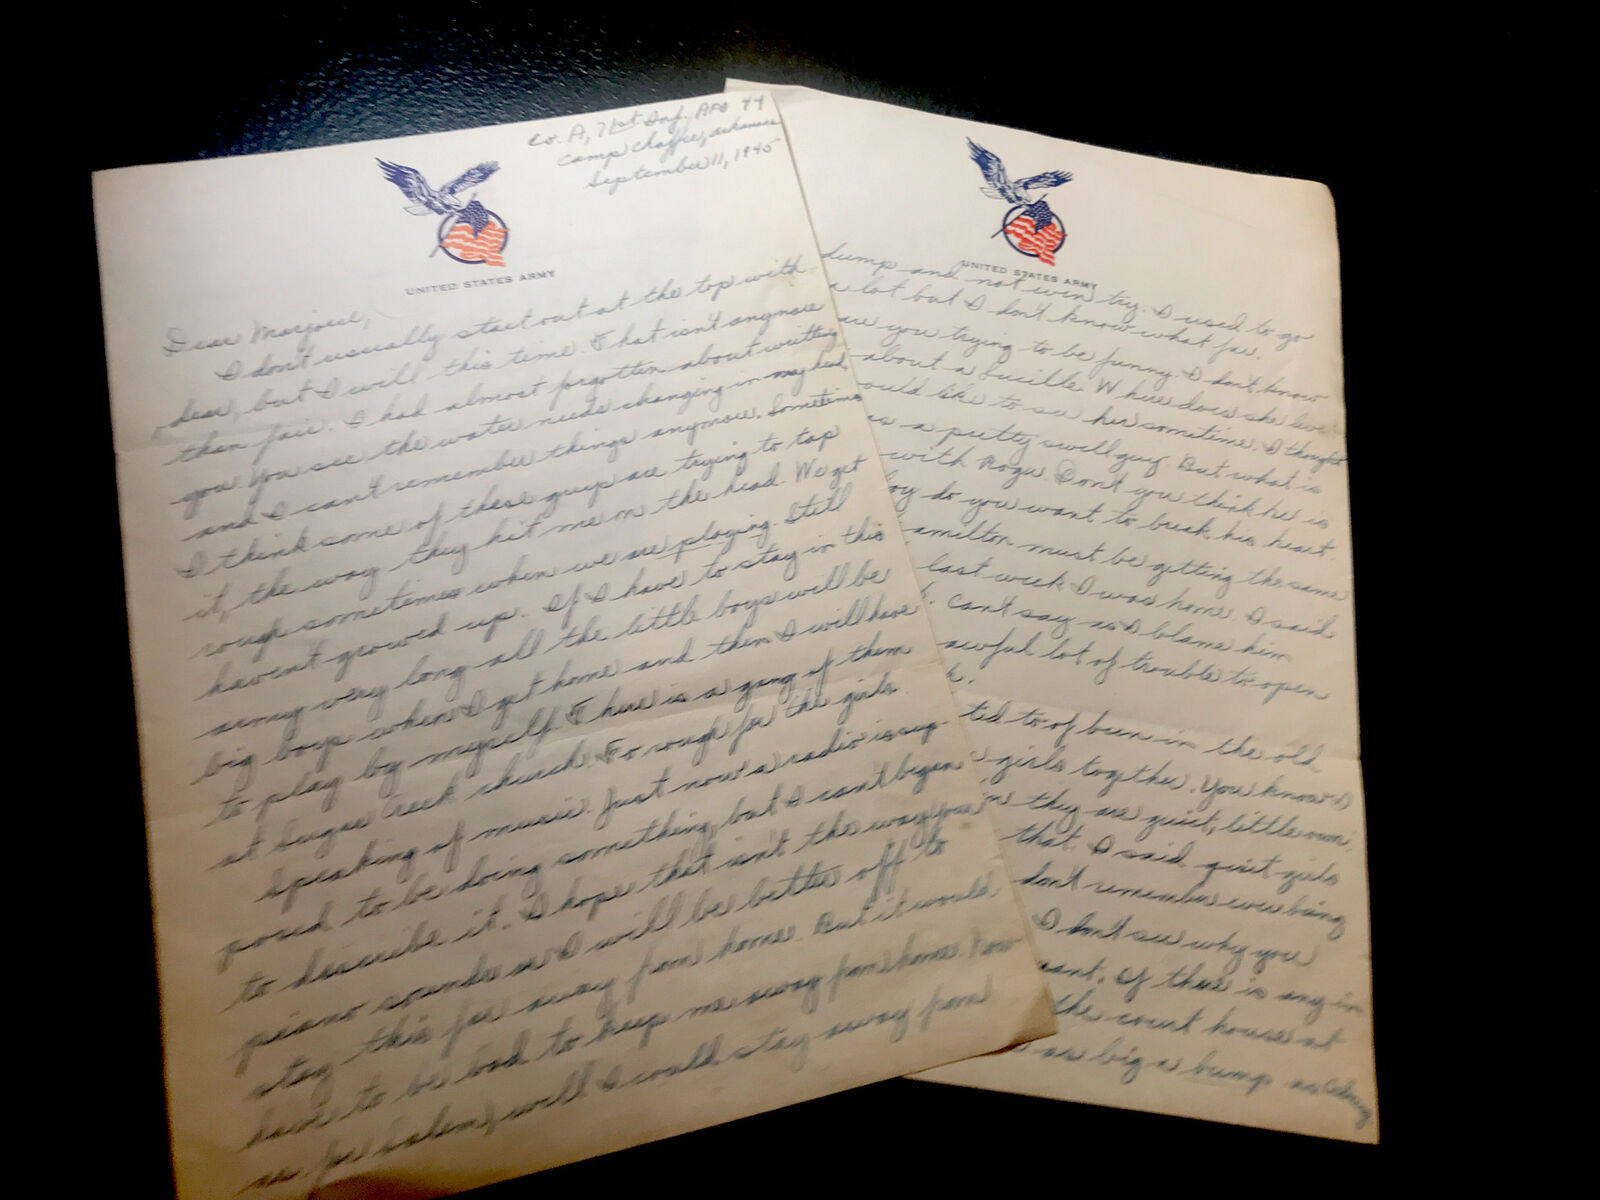 Co. A, 71st Inf. APO 44
Camp Chaffee, Arkansas
September 11, 1945
UNITED STATES ARMY
Dear Marjorie,
I don't usually start out at the top with
dear, but I will this time. That isn't anymore
than fair. I had almost forgotten about writting
you. You see the water needs changing in my head
and I can't remember things anymore. Sometimes
I think some of these guys are trying to tap
it, the way they hit me on the head. We get
rough sometimes when we are playing. Still
haven't growed up. If I have to stay in this
army very long all the little boys will be
big boys when I get home and then I will have
to play by myself. There is a gang of them
at Sugar Creek church. To rough for the girls.
Speaking of music. Just now a radio is sup-
posed to be doing something, but I can't began
to describe it. I hope that isn't the way your
piano sounds or I will be better off to
stay this far away from home. But it would
have to be bad to keep me away from home. Now
as for Salem, well I could stay away from
UNITED STATES ARMY
dump and not even try. I used to go
a lot but I don't know what for.
are you trying to be funny. I don't know
about a Lucille. Where does she live
would like to see her sometime. I thought
as a pretty swell guy. But what is
with Roger. Don't you think he is
oy do you want to break his heart.
amilton must be getting the same
last week I was home. I said
Can't say as I blame him
awful lot of trouble to open
k.
ted to of been in the old
girls together. You know I
they are quiet, little
that. I said quiet girls
don't remember ever being
I don't see why you
want. If there is any in
the court house at
as big a bump as